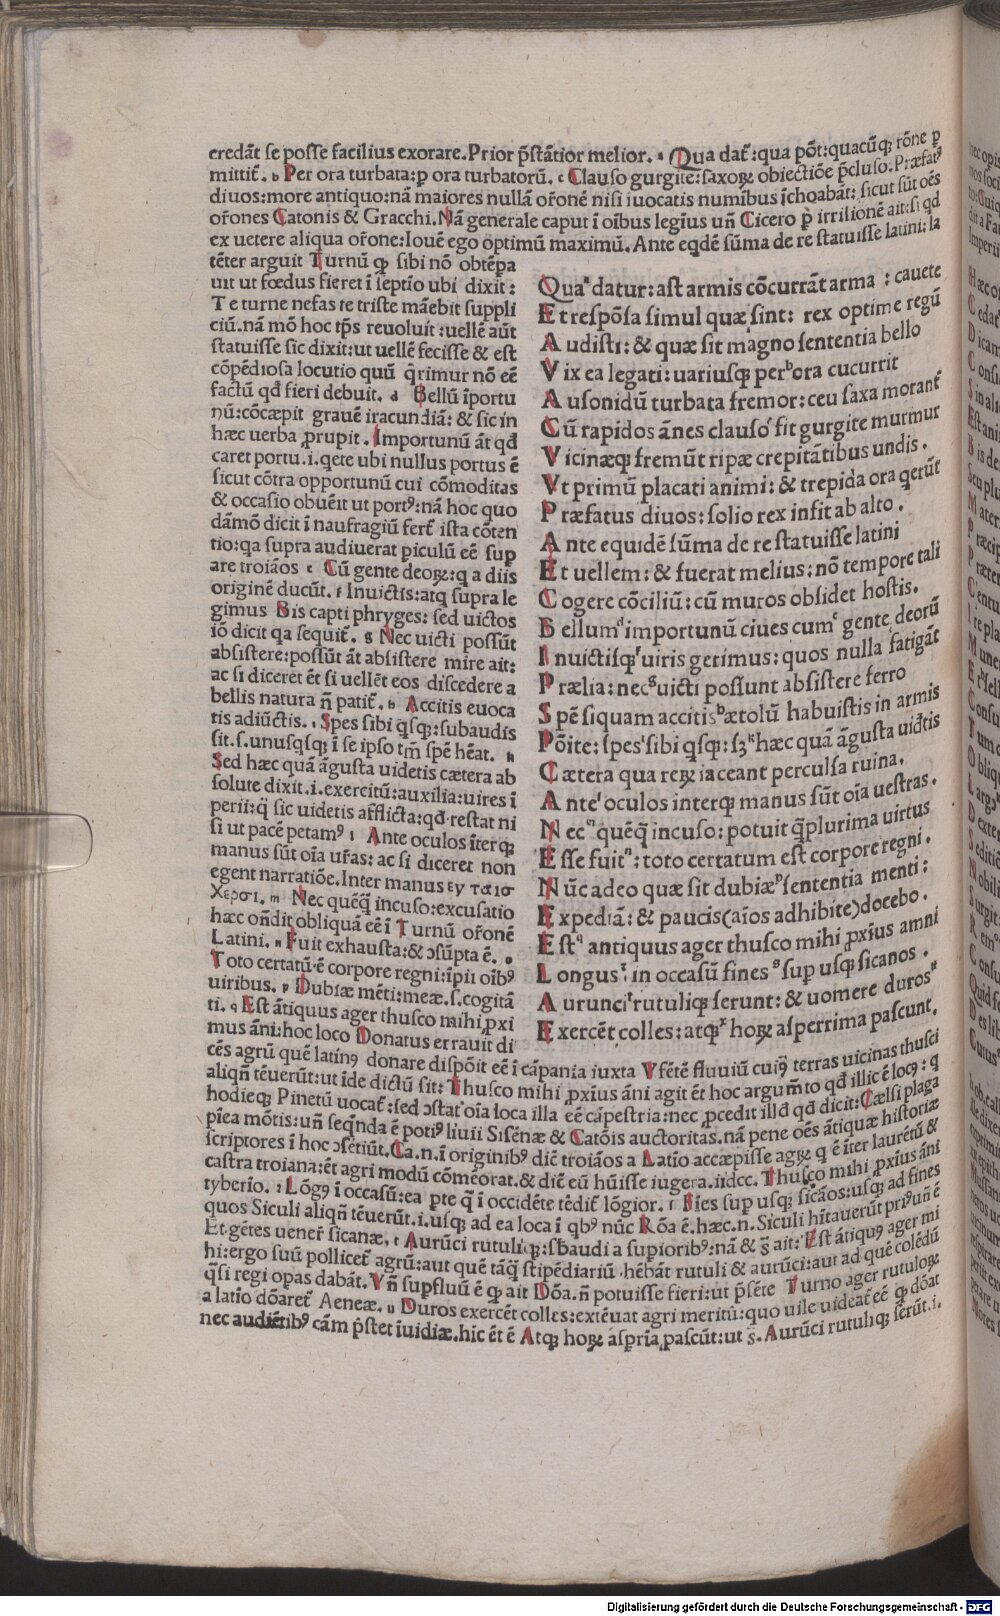 credāt se posse facilius exorare. Prior p̄stātior melior. a Qua dat᷑: qua pōt: quacūq; rōne p
mittit᷑. b Per ora turbata: p ora turbatorū. c Clauso gurgite: saxoꝝ obiectiōe p̄cluso. Præfatꝰ
diuos: more antiquo: nā maiores nullā orōnē nisi īuocatis numībus ichoabāt: sicut sūt oēs
orōnes Catonis & Gracchi. Nā generale caput ī oībus legīus un̄ Cicero p̄ irrisionē ait: si qd
ex uetere aliqua orōne: Iouē ego optimū maximū. Ante eqdē sūma de re statuisse latini: la
tēter arguit Turnū ꝙ sibi nō obtēpa
uit ut fœdus fieret ī septio ubi dixit:
Te turne nefas te triste māebit suppli
ciū. nā mō hoc tp̄s reuoluit: uellē aūt
statuisse sic dixit: ut uellē fecisse & est
cōpēdiosa locutio quū q̄rimur nō eē
factū qd̄ fieri debuit. d Bellū īportu
nū: cōcæpit grauē iracundiā: & sic in
hæc uerba prupit. Importunū āt qd̄
caret portu. i. qete ubi nullus portus ē
sicut cōtra opportunū cui cōmoditas
& occasio obuēit ut portꝰ: nā hoc quo
dāmō dicit ī naufragiū fert᷑ ista cōten
tio: qa supra audiuerat piculū eē sup
are troiāos e Cū gente deoꝝ: q a diis
originē ducūt. f Inuictis: atq supra le
gimus Bis capti phryges: sed uictos
iō dicit qa sequit᷑. g Nec uicti possūt
absistere: possūt āt absistere mire ait:
ac si diceret ēt si uellēt eos discedere a
bellis natura n̄ patit᷑. h Accitis euoca
tis adiūctis. i Spes sibi qsq;: subaudis
sit. s. unusqsq; ī se ipso tm̄ spē hēat. k
Sed hæc quā āgusta uidetis cætera ab
solute dixit. i. exercitū: auxilia: uires ī
perii: q̄ sic uidetis afflicta: qd̄ restat ni
si ut pacē petamꝰ l Ante oculos īterq;
manus sūt oīa ur̄as: ac si diceret non
egent narratiōe. Inter manus ευ ταισ
χερσι. m Nec quēq̄ incuso: excusatio
hæc on̄dit obliquā eē ī Turnū orōnē
Latini. n Fuit exhausta: & ɔsūpta ē. o
Toto certatū ē corpore regni: īpii oībꝰ
uiribus. p Dubiæ mēti: meæ. s. cogitā
ti. q Est ātiquus ager thusco mihi pxi
mus āni: hoc loco Donatus errauit di
Quaᵃ datur: ast armis cōcurrāt arma : cauete
Et respōsa simul quæ sint: rex optime regū
Audisti: & quæ sit magno sententia bello
Vix ea legati: uariusq; perᵇ ora cucurrit
Ausonidū turbata fremor: ceu saxa morant᷑
Cū rapidos ānes clausoᶜ fit gurgite murmur
Vicinæq; fremūt ripæ crepitātibus undis.
Vt primū placati animi: & trepida ora qerūt
Præfatus diuos: solio rex infit ab alto.
Ante equidē sūma de re statuisse latini
Et uellem: & fuerat melius: nō tempore tali
Cogere cōciliū: cū muros obsidet hostis.
Bellumᵈ importunū ciues cumᵉ gente deorū
Inuictisq;ᶠ uiris gerimus: quos nulla fatigāt
Prælia: necᵍ uicti possunt absistere ferro
Spē siquam accitisʰ ætolū habuistis in armis
Pōite: spesⁱ sibi qsq;: sꝫᵏ hæc quā āgusta uidētis
Cætera qua reꝝ iaceant perculsa ruina.
Anteˡ oculos interq; manus sūt oīa uestras.
Necᵐ quēq̄ incuso: potuit q̄ plurima uirtus
Esse fuitⁿ: toto certatum est corpore regni.
Nūc adeo quæ sit dubiæᵖ sententia menti:
Expediā: & paucis (aīos adhibite) docebo.
Est antiquus ager thusco mihi pxīus amni
Longusʳ in occasū fines ˢsup usq; sicanos.
Aurunciᵗ rutuliq; serunt: & uomere durosᵘ
Exercēt colles: atq;ˣ hoꝝ asperrima pascunt.
cēs agrū quē latīnꝰ donare dispōit eē ī cāpania iuxta Vfētē fluuiū cuiꝰ terras uicinas thusci
aliqn̄ tēuerūt: ut īde dictū sit: Thusco mihi pxīus āni agit ēt hoc argum̄to qd̄ illic ē locꝰ: q
hodieq; Pinetū uocat᷑: sed ɔstat oīa loca illa eē cāpestria: nec pcedit illd̄ qd̄ dicit: Cælsi plaga
pīea mōtis: un̄ seqnda ē potiꝰ liuii Sisēnæ & Catōis auctoritas. nā pene oēs ātiquæ historiæ
scriptores ī hoc ɔsētiūt. Ca. n. ī originibꝰ dic̄ troiāos a Latīo accæpisse agꝝ q ē īter laurētū &
castra troiana: ēt agri modū cōmēorat. & dic̄ eū hūisse iugera. iidcc. Thusco mihi pxīus āni
tyberīo. r Lōgꝰ ī occasū: ea pte q̄ ī occidēte tēdit᷑ lōgior. s Fies sup usq; sicāos: usq; ad fines
quos Siculi aliqn̄ tēuerūt. i. usq; ad ea loca ī qbꝰ nūc Rōa ē. hæc. n. Siculi hītauerūt priꝰ un̄ ē
Et gētes uener̄ sicanæ. t Aurūci rutuliq;: sb̄audi a supioribꝰ: nā & s̄ ait: Est ātiquꝰ ager mi
hi: ergo suū pollicet᷑ agrū: aut quē tāq̄ stipēdiariū hēbāt rutuli & aurūci: aut ad quē colēdū
q̄si regi opas dabāt. Vn̄ supfluū ē ꝙ ait Dōa. n̄ potuisse fieri: ut p̄sēte Turno ager rutuloꝝ
a latīo dōaret᷑ Aeneæ. u Duros exercēt colles: extēuat agri meritū: quo uile uideat᷑ eē ꝙ dōat
nec audiētibꝰ cām p̄stet īuidiæ. hic ēt ē Atq; hoꝝ aspria pascūt: ut s̄. Aurūci rutuliq; serūt. i.
Digitalisierung gefördert durch die Deutsche Forschungsgemeinschaft - DFG